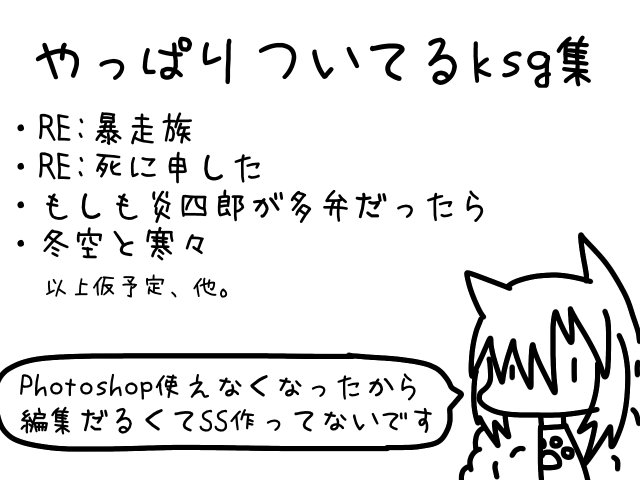 やっぱりついてるksg集
・RE:暴走族
・RE:死に申した
・もしも炎四郎が多弁だったら
・冬空と寒々
以上仮予定、他。
Photoshop使えなくなったから
編集だるくてSS作ってないです